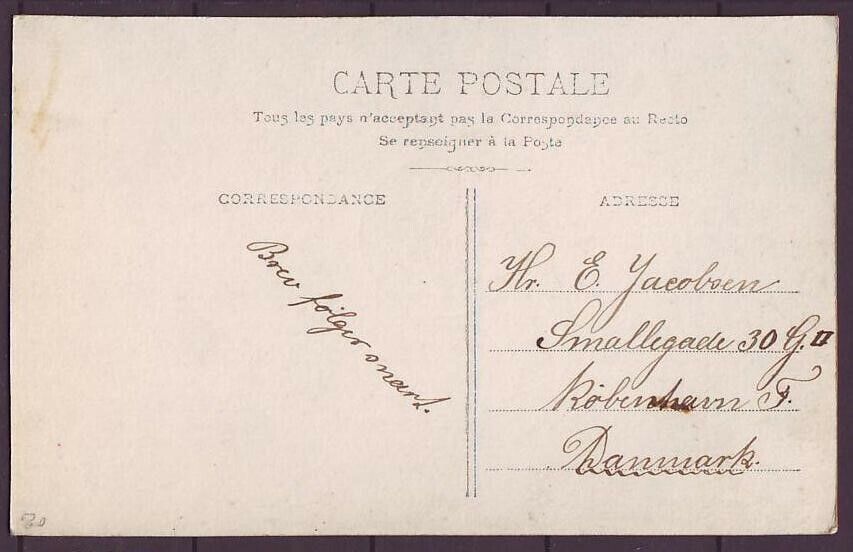 CARTE POSTALE
Tous les pays n'acceptant pas la Correspondance au Recto
Se renseigner à la Poste
CORRESPONDANCE
Brev følger snart.
ADRESSE
Hr. E. Jacobsen
Smallegade 30 G. II
København F.
Danmark.